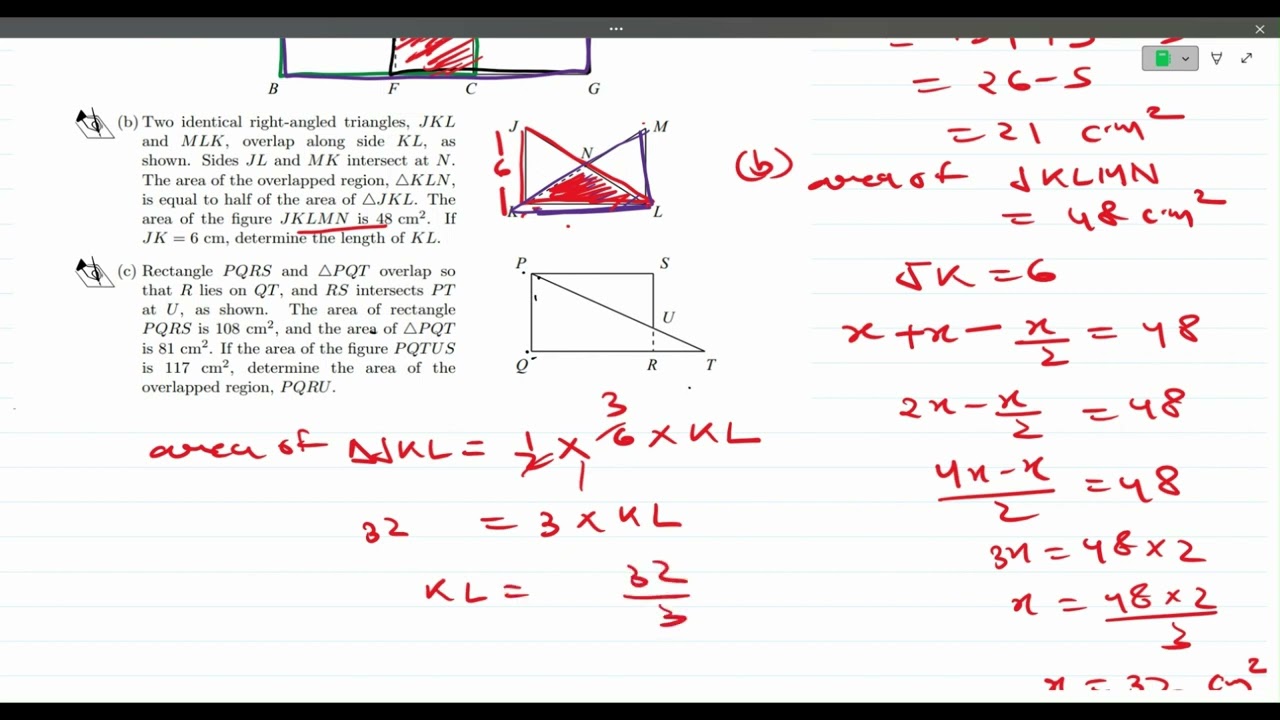 B F C G
= 26-5
= 21 cm²
(b) Two identical right-angled triangles, JKL
and MLK, overlap along side KL, as
shown. Sides JL and MK intersect at N.
The area of the overlapped region, △KLN,
is equal to half of the area of △JKL. The
area of the figure JKLMN is 48 cm². If
JK = 6 cm, determine the length of KL.
J M
N
6
K L
(b) area of JKLMN
= 48 cm²
JK = 6
x + x - x/2 = 48
2x - x/2 = 48
4x - x/2 = 48
3x = 48 × 2
x = 48 × 2/3
(c) Rectangle PQRS and △PQT overlap so
that R lies on QT, and RS intersects PT
at U, as shown. The area of rectangle
PQRS is 108 cm², and the area of △PQT
is 81 cm². If the area of the figure PQTUS
is 117 cm², determine the area of the
overlapped region, PQRU.
P S
U
Q R T
3
area of △JKL = 1/2 × 6/1 × KL
32 = 3 × KL
KL = 32/3